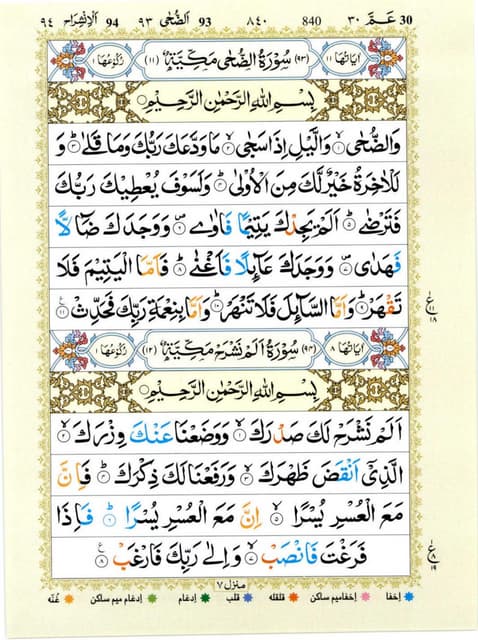 ٣٠ عَمَّ 30 840 ٨٤٠ ٩٣ اَلضُّحٰى 93 ٩٤ اَلاِنْشِرَاح 94
اٰيَاتُهَا ١١ (٩٣) سُوْرَةُ الضُّحٰى مَكِّيَّةٌ (١١) رُكُوْعُهَا ١
بِسْمِ اللّٰهِ الرَّحْمٰنِ الرَّحِيْمِ
وَالضُّحٰىۙ۱ وَالَّيْلِ اِذَا سَجٰىۙ۲ مَا وَدَّعَكَ رَبُّكَ وَمَا قَلٰىؕ۳ وَ
لَلْاٰخِرَةُ خَيْرٌ لَّكَ مِنَ الْاُوْلٰىؕ۴ وَلَسَوْفَ يُعْطِيْكَ رَبُّكَ
فَتَرْضٰىؕ۵ اَلَمْ يَجِدْكَ يَتِيْمًا فَاٰوٰى۪۶ وَوَجَدَكَ ضَآلًّا
فَهَدٰى۪۷ وَوَجَدَكَ عَآئِلًا فَاَغْنٰىؕ۸ فَاَمَّا الْيَتِيْمَ فَلَا
تَقْهَرْؕ۹ وَاَمَّا السَّآئِلَ فَلَا تَنْهَرْؕ۱۰ وَاَمَّا بِنِعْمَةِ رَبِّكَ فَحَدِّثْ۱۱
ع ١١ ١٨
اٰيَاتُهَا ٨ (٩٤) سُوْرَةُ اَلَمْ نَشْرَحْ مَكِّيَّةٌ (١٢) رُكُوْعُهَا ١
بِسْمِ اللّٰهِ الرَّحْمٰنِ الرَّحِيْمِ
اَلَمْ نَشْرَحْ لَكَ صَدْرَكَۙ۱ وَوَضَعْنَا عَنْكَ وِزْرَكَۙ۲
الَّذِيْۤ اَنْقَضَ ظَهْرَكَۙ۳ وَرَفَعْنَا لَكَ ذِكْرَكَؕ۴ فَاِنَّ
مَعَ الْعُسْرِ يُسْرًاۙ۵ اِنَّ مَعَ الْعُسْرِ يُسْرًاؕ۶ فَاِذَا
فَرَغْتَ فَانْصَبْۙ۷ وَاِلٰى رَبِّكَ فَارْغَبْ۸
ع ٨ ١٩
منزل ٧
اِخفا اِخفامیم ساکن قلقله قلب اِدغام اِدغام میم ساکن غُنّه